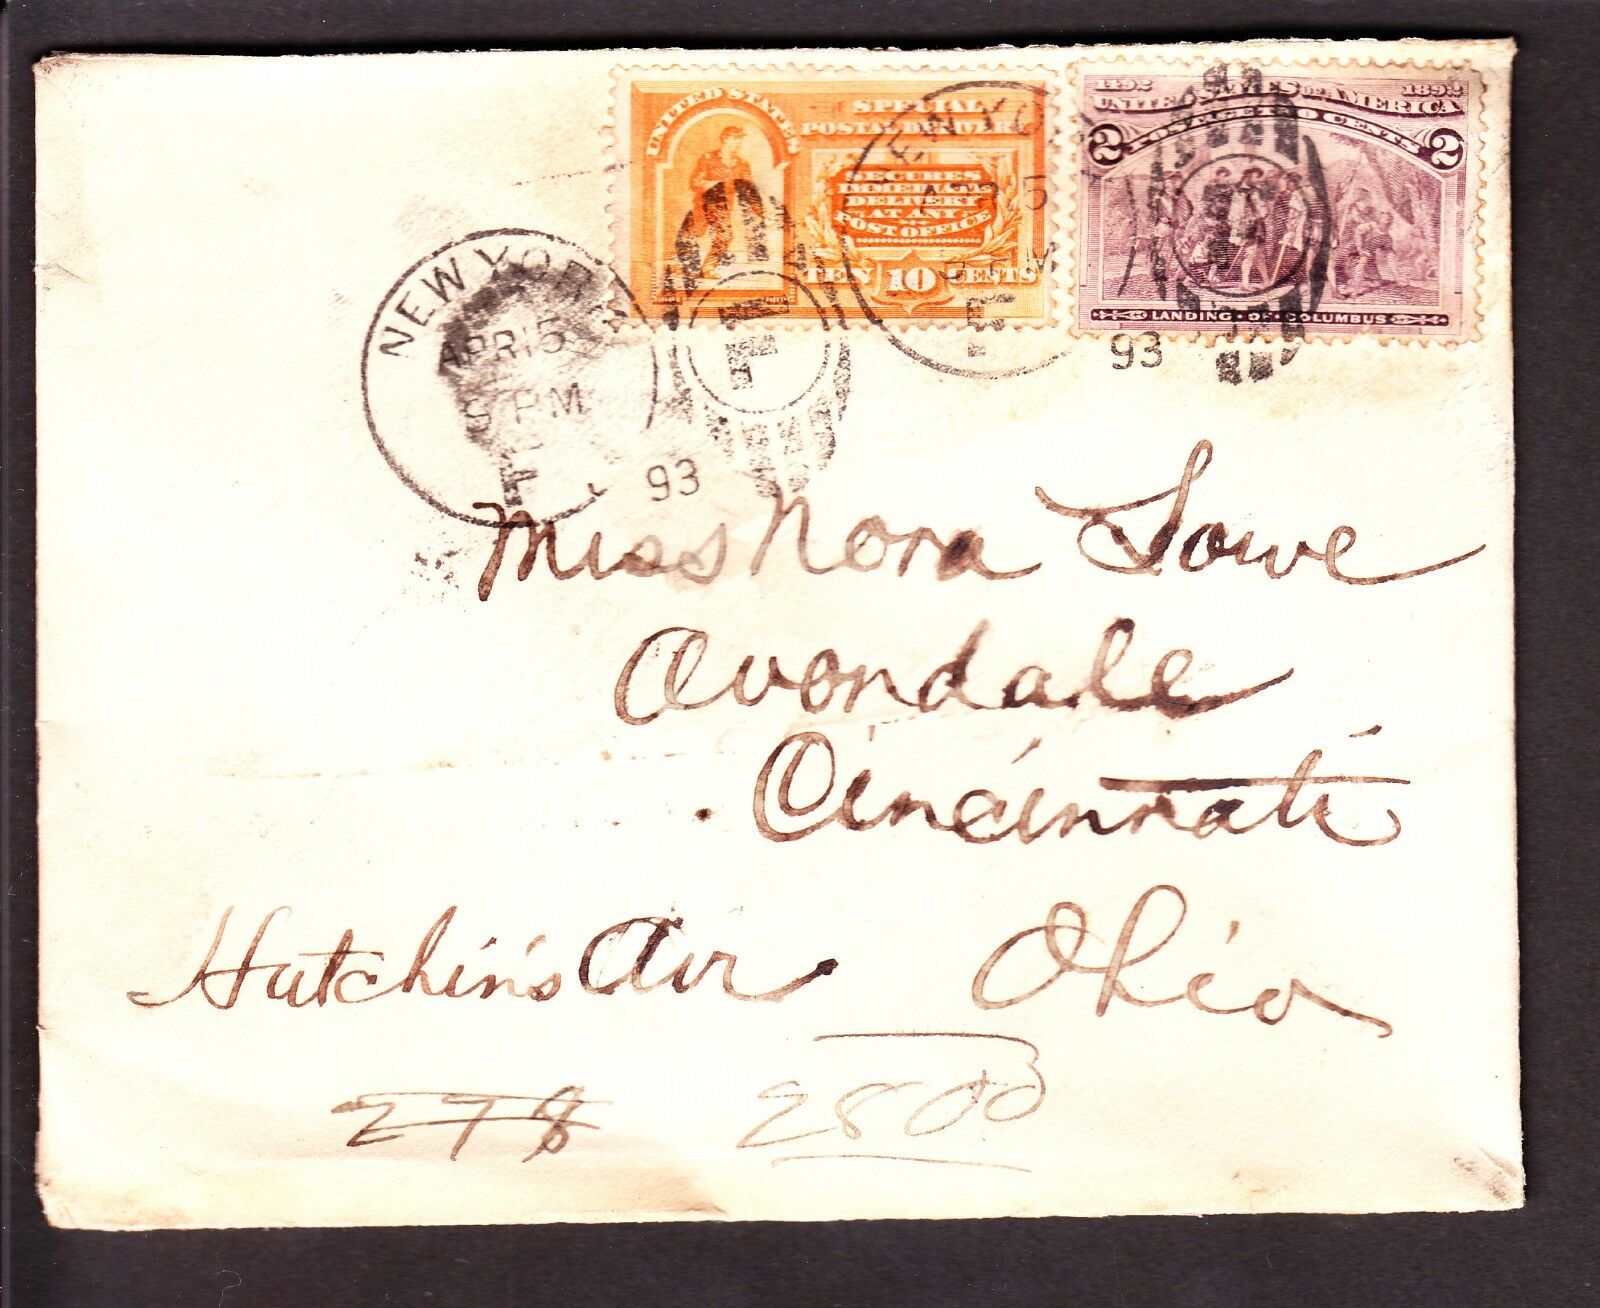 UNITED STATES
SPECIAL
POSTAL DELIVERY
SECURES
IMMEDIATE
DELIVERY
AT ANY
POST OFFICE
TEN 10 CENTS
1492 1892
UNITED STATES OF AMERICA
POSTAGE TWO CENTS
2 2
LANDING OF COLUMBUS
NEW YORK
APR 15
PM
93
NEW YO
APR 5
PM
93
Miss Nora Lowe
Avondale
Cincinnati
Hutchin's Av Ohio
278